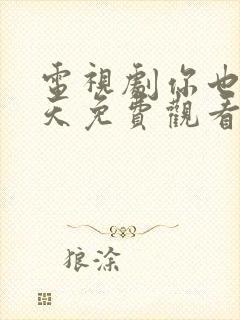 電視劇你也
天免費觀看
狼涂